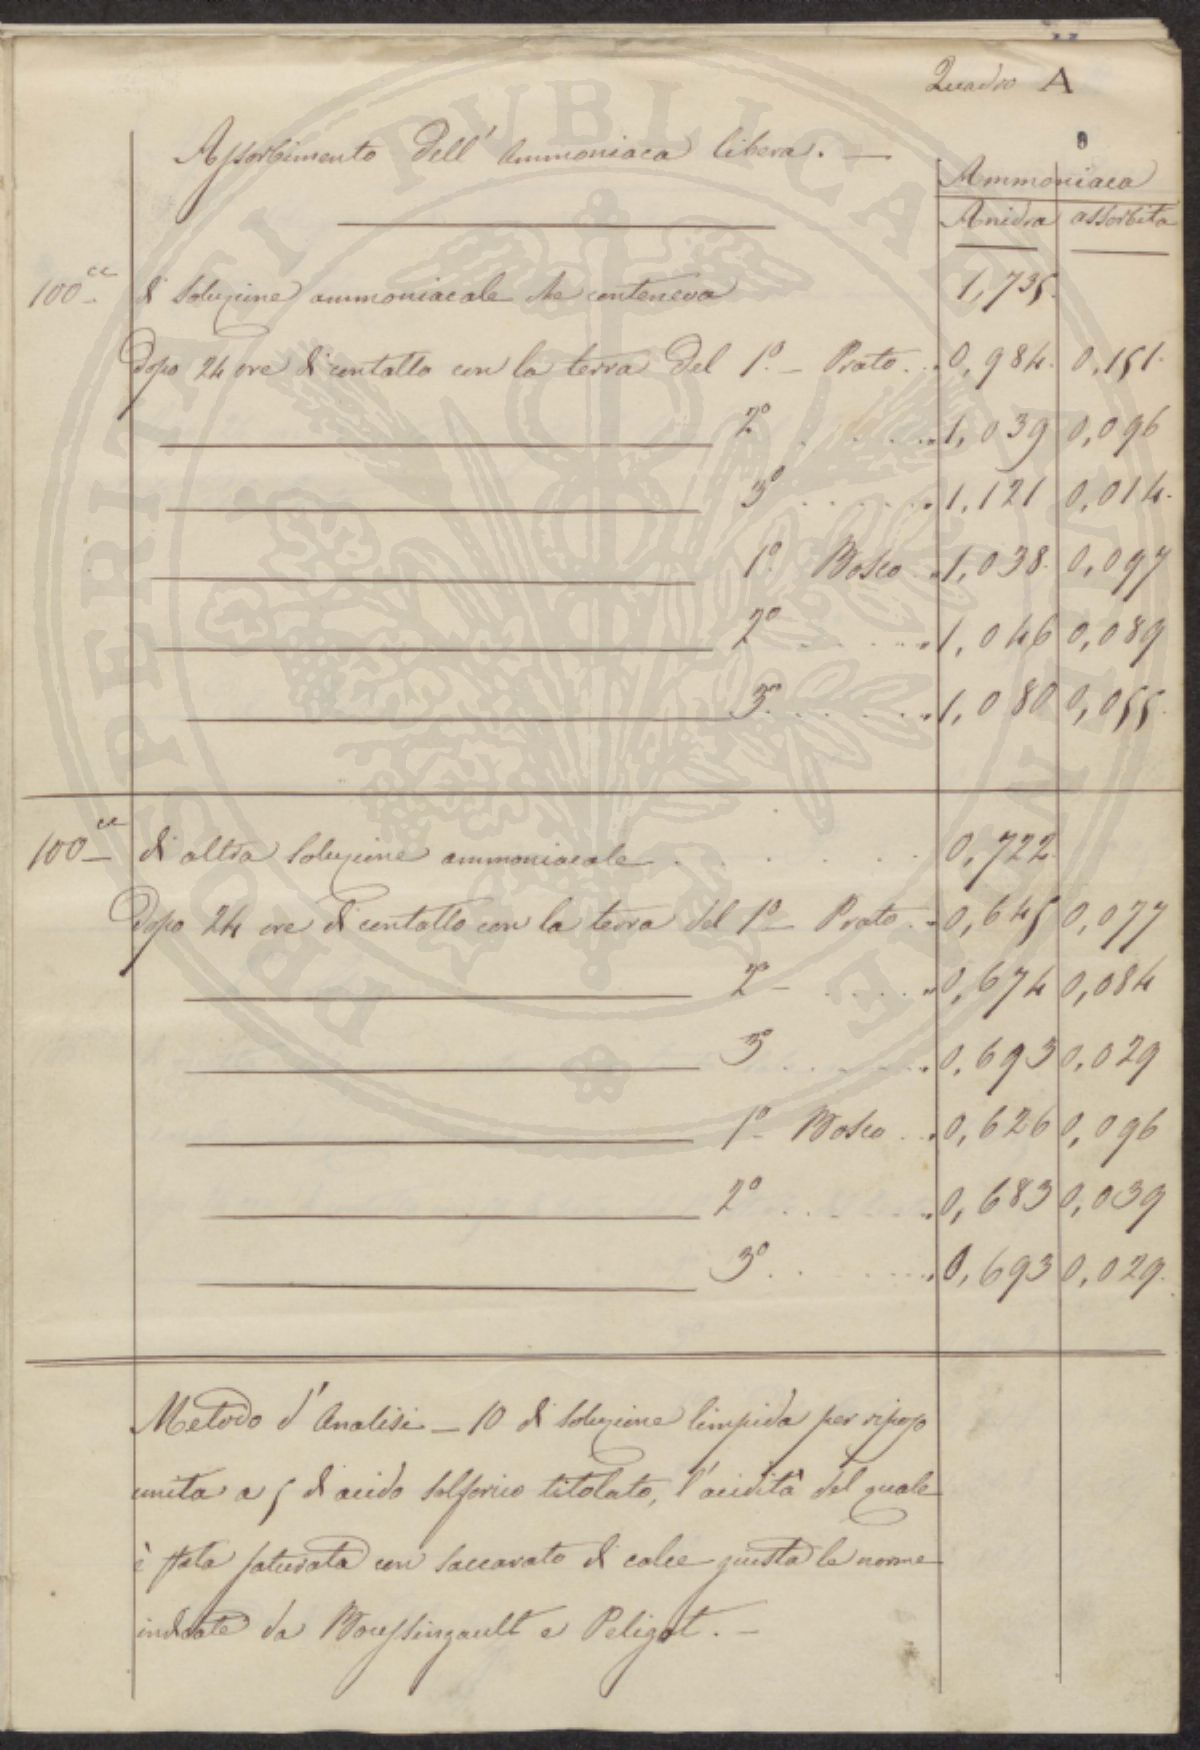 Quadro A
Assorbimento dell' Ammoniaca libera. —
Ammoniaca
Anidra assorbita
100 cc di soluzione ammoniacale che conteneva 1,735.
Dopo 24 ore di contatto con la terra del 1º – Prato . . 0,984. 0,151.
2º . . . . . 1,039 0,096
3º . . . . . 1,121 0,014.
1º. Bosco . 1,038. 0,097
2º . . . . . 1,046 0,089
3º . . . . . 1,080 0,055.
100 cc di altra soluzione ammoniacale . . . . . . 0,722.
Dopo 24 ore di contatto con la terra del 1º – Prato . . 0,645 0,077
2º – . . . . . 0,674 0,084
3º . . . . . 0,693 0,029
1º – Bosco . . 0,626 0,096
2º . . . . . 0,683 0,039
3º . . . . . 0,693 0,029.
Metodo d' Analisi – 10 di soluzione limpida per riposo
unita a 5 di acido solforico titolato, l'acidità del quale
è stata saturata con saccarato di calce giusta le norme
indicate da Boussingault e Peligot. –
PUBLICAE PROSPERITATI